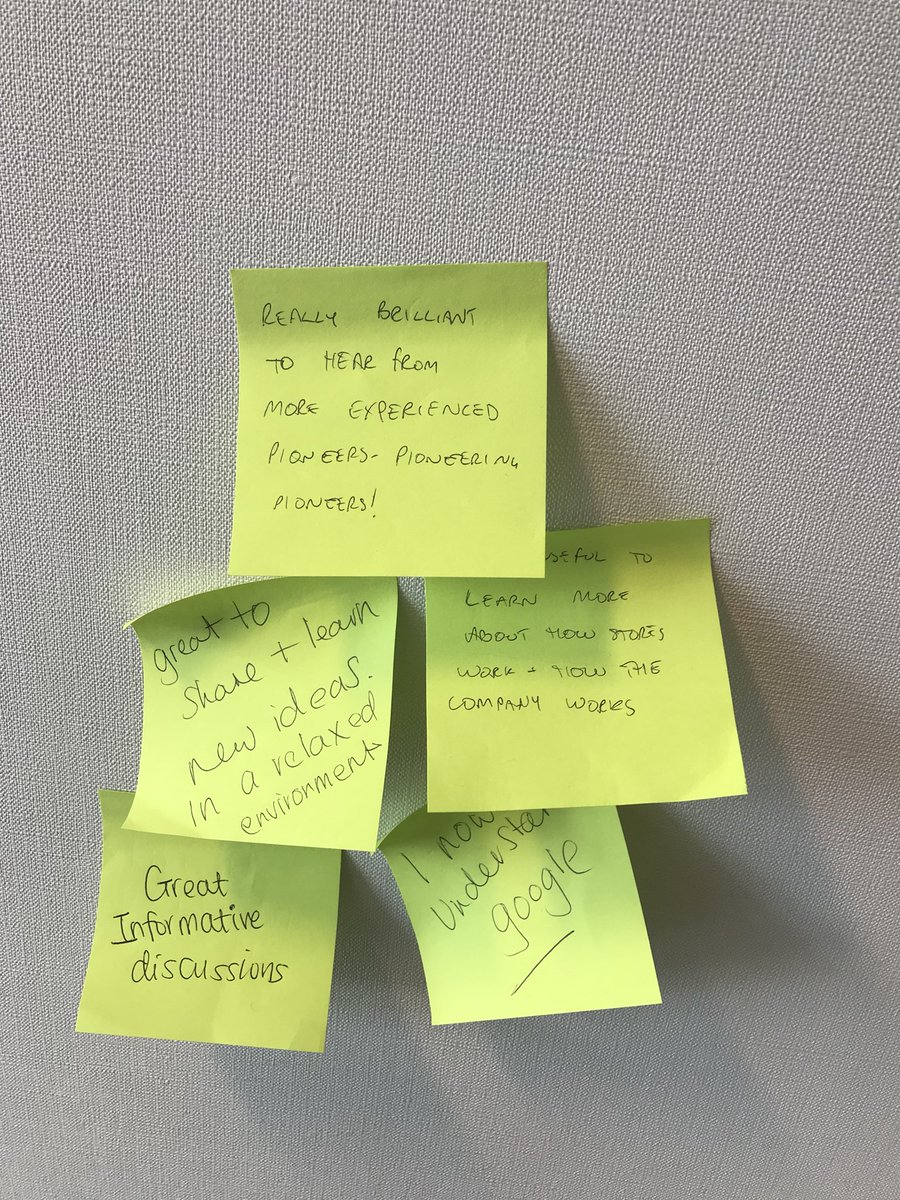 REALLY BRILLIANT
TO HEAR from
MORE EXPERIENCED
PIONEERS- PIONEERING
PIONEERS!
great to
share + learn
new ideas.
In a relaxed
environment
TO
LEARN MORE
ABOUT HOW STORES
WORK + HOW THE
COMPANY WORKS
Great
Informative
discussions
I now
google